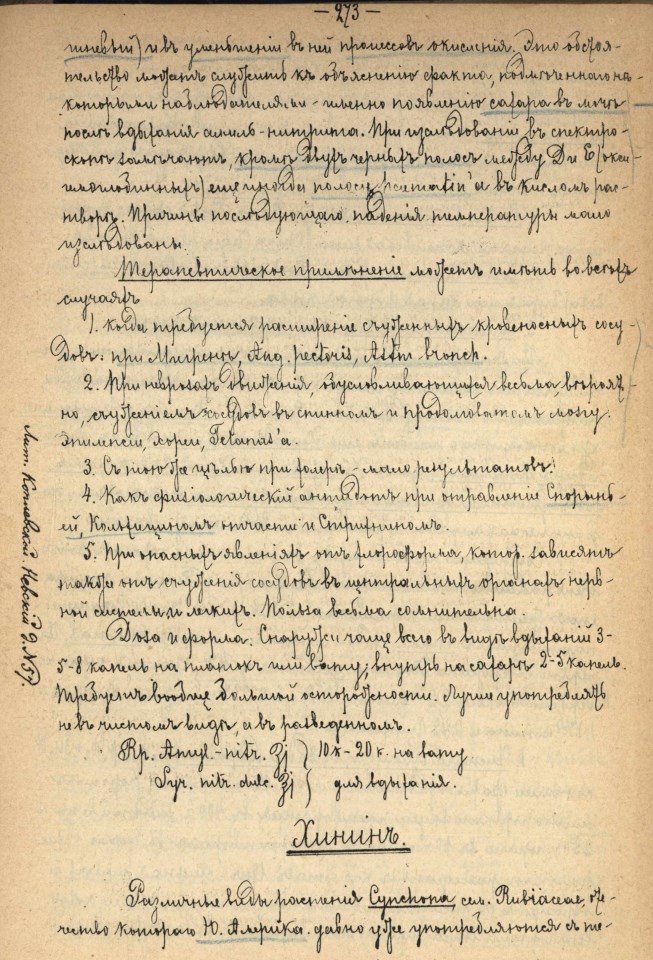 — 273 —
шневый) и въ уменьшеніи въ ней процессовъ окисленія. Это обстоя-
тельство можетъ служить къ объясненію факта, подмѣченнаго нѣ-
которыми наблюдателями - именно появленію сахара въ мочѣ
послѣ вдыханія амиль-нитрита. При изслѣдованіи въ спектро-
скопѣ замѣчаютъ, кромѣ двухъ черныхъ полосъ между D и E (окси-
гемоглобинныхъ) еще иногда полосу haematin'а въ кисломъ рас-
творѣ. Причины послѣдующаго паденія температуры мало
изслѣдованы.
Терапевтическое примѣненіе можетъ имѣть во всѣхъ
случаяхъ
1. Когда требуется расширеніе съуженныхъ кровеносныхъ сосу-
довъ: при Мигрени, Ang. pectoris, Astm bronch.
2. При неврозахъ движенія, обусловливающихся весьма вѣроят-
но, съуженіемъ сосудовъ въ спинномъ и продолговатомъ мозгу.
Эпилепсіи, Хореи, Tetanus'а.
3. Съ тою же цѣлью при холерѣ - мало результатовъ.
4. Какъ физіологическій антидотъ при отравленіе Спорынь-
ей, Кольхициномъ отчасти и Стрихниномъ.
5. При опасныхъ явленіяхъ отъ хлороформа, котор. зависятъ
также отъ съуженія сосудовъ въ центральныхъ органахъ нерв-
ной системы и легкихъ. Польза весьма сомнительна.
Доза и форма. Снаружи чаще всего въ видѣ вдыханій 3-
5-8 капель на платокъ или вату; внутрь на сахарѣ 2-5 капель.
Требуетъ вообще большой осторожности. Лучше употреблять
не въ чистомъ видѣ, а въ разведенномъ.
Rp. Amyl.-nitr. ʒj } 10 к - 20 к. на вату
Syr. nitr. dulc. ʒj } для вдыханія.
Хининъ.
Различные виды растенія Cynchona, сем. Rubiaceae, оте-
чество котораго Ю. Америка. давно уже употребляются съ те-
Лит. Кочневской. Невскій д. №57.